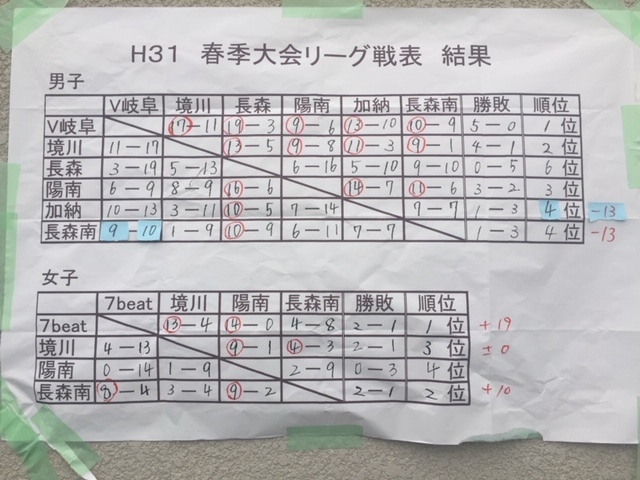 H31 春季大会リーグ戦表 結果
男子
V岐阜 境川 長森 陽南 加納 長森南 勝敗 順位
V岐阜 17-11 19-3 9-6 13-10 10-9 5-0 1位
境川 11-17 13-5 9-8 11-3 9-1 4-1 2位
長森 3-19 5-13 6-16 5-10 9-10 0-5 6位
陽南 6-9 8-9 16-6 14-7 11-6 3-2 3位
加納 10-13 3-11 10-5 7-14 9-7 1-3 4位 -13
長森南 9-10 1-9 10-9 6-11 7-7 1-3 4位 -13
女子
7beat 境川 陽南 長森南 勝敗 順位
7beat 13-4 4-0 4-8 2-1 1位 +19
境川 4-13 9-1 4-3 2-1 3位 ±0
陽南 0-14 1-9 2-9 0-3 4位
長森南 8-4 3-4 9-2 2-1 2位 +10